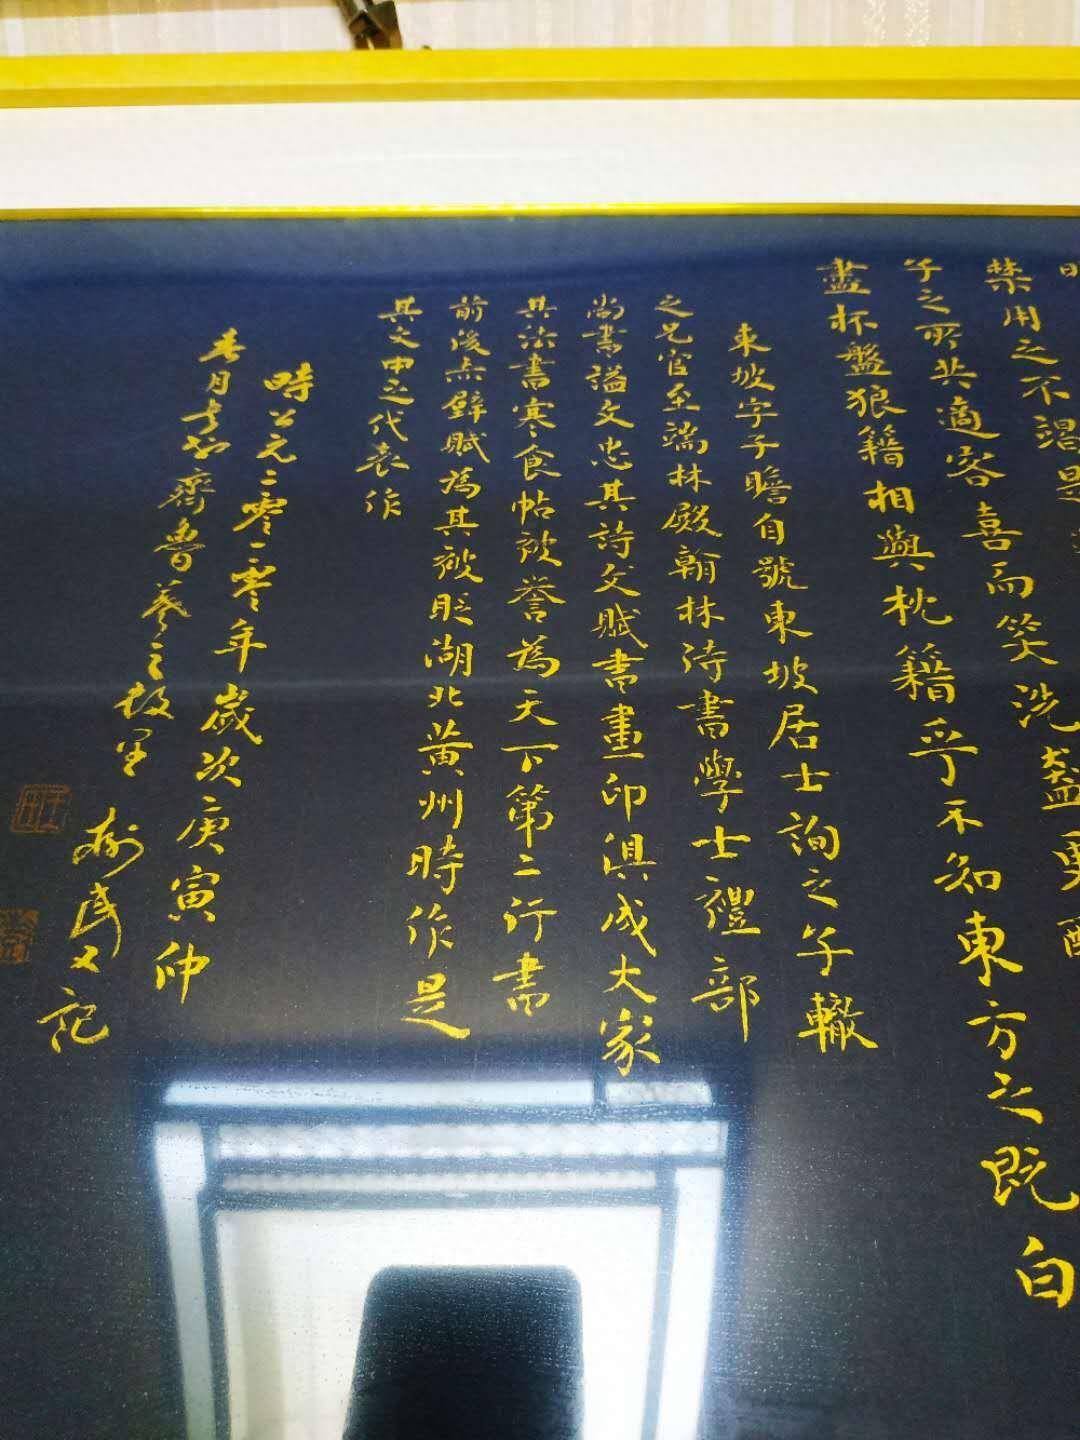 禁用之不竭是
子之所共適客喜而笑洗盞更酌
盡杯盤狼籍相與枕籍乎不知東方之既白
東坡字子瞻自號東坡居士詢之子轍
之兄官至端林殿翰林侍書學士禮部
尚書謚文忠其詩父賦書畫印俱成大家
其法書寒食帖被誉為天下第二行書
前後赤壁賦為其被貶湖北黄州時作是
其文中之代表作
時公元二零一零年歲次庚寅仲
春月於齊魯羲之故里
民又記